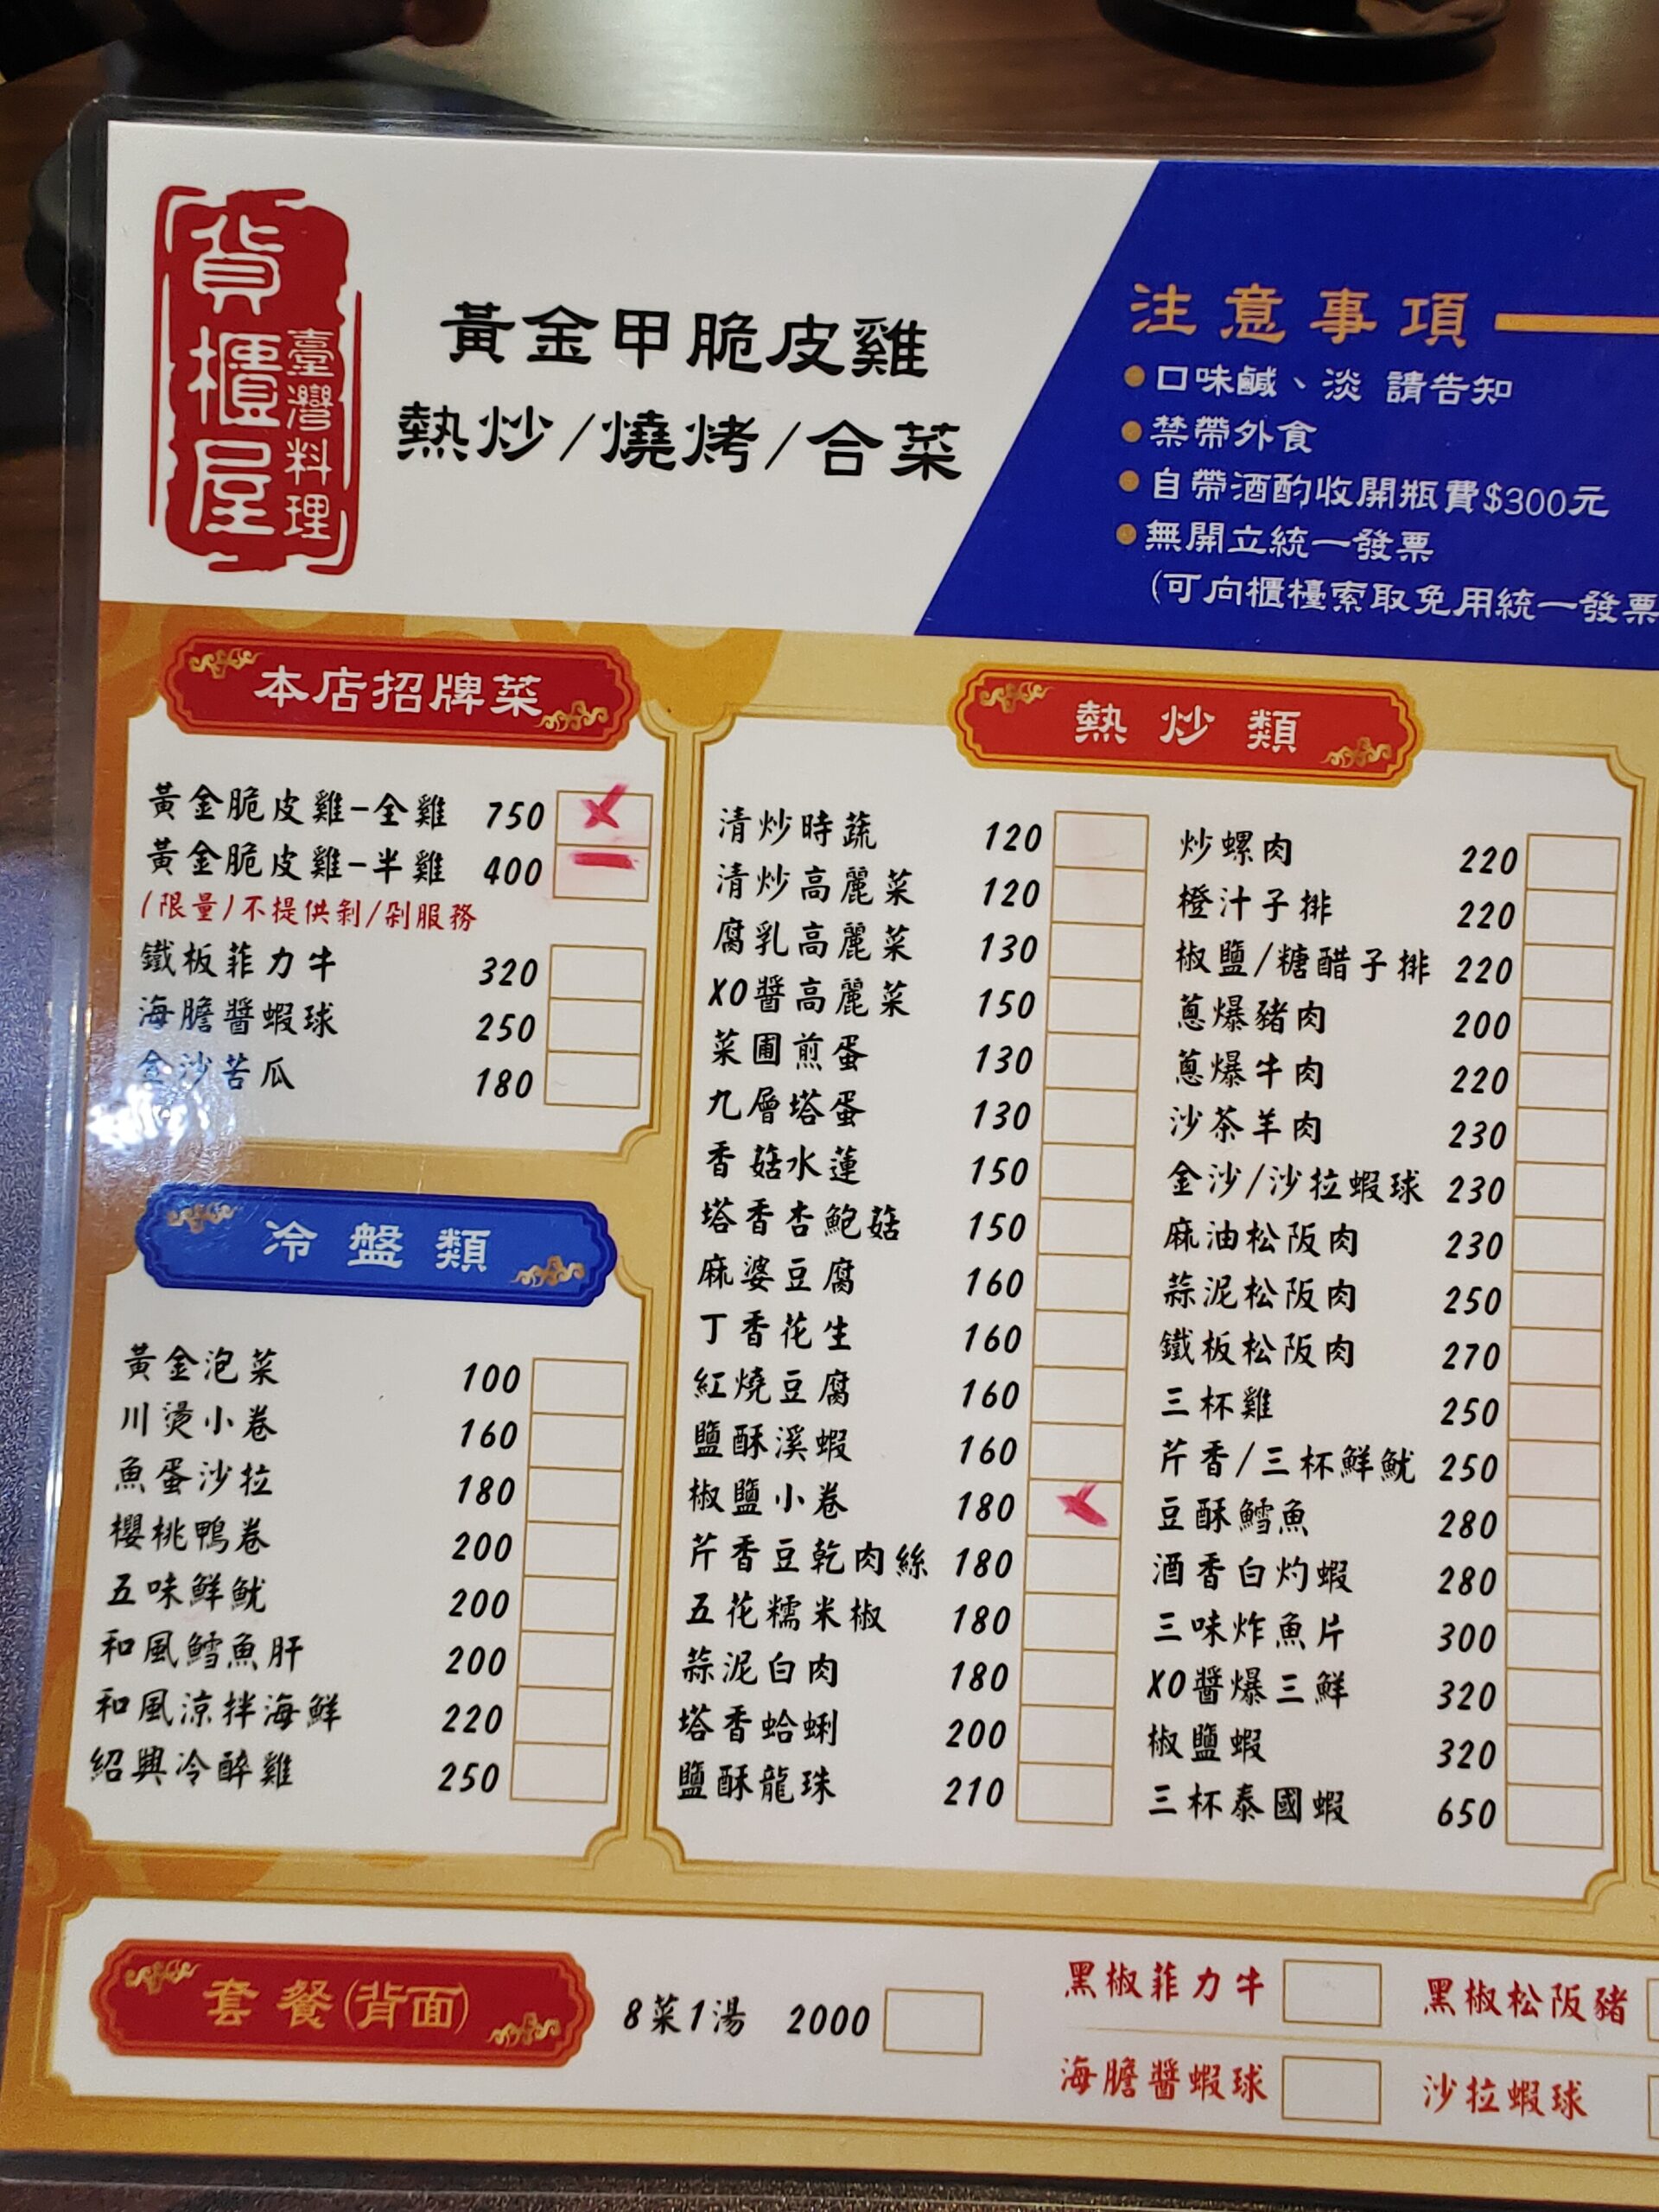 貨櫃屋
臺灣料理
黃金甲脆皮雞
熱炒/燒烤/合菜
注意事項
口味鹹、淡 請告知
禁帶外食
自帶酒酌收開瓶費$300元
無開立統一發票
(可向櫃檯索取免用統一發票
本店招牌菜
黃金脆皮雞-全雞 750
黃金脆皮雞-半雞 400
(限量)不提供剝/剁服務
鐵板菲力牛 320
海膽醬蝦球 250
金沙苦瓜 180
冷盤類
黃金泡菜 100
川燙小卷 160
魚蛋沙拉 180
櫻桃鴨卷 200
五味鮮魷 200
和風鱈魚肝 200
和風涼拌海鮮 220
紹興冷醉雞 250
熱炒類
清炒時蔬 120
清炒高麗菜 120
腐乳高麗菜 130
XO醬高麗菜 150
菜圃煎蛋 130
九層塔蛋 130
香菇水蓮 150
塔香杏鮑菇 150
麻婆豆腐 160
丁香花生 160
紅燒豆腐 160
鹽酥溪蝦 160
椒鹽小卷 180
芹香豆乾肉絲 180
五花糯米椒 180
蒜泥白肉 180
塔香蛤蜊 200
鹽酥龍珠 210
炒螺肉 220
橙汁子排 220
椒鹽/糖醋子排 220
蔥爆豬肉 200
蔥爆牛肉 220
沙茶羊肉 230
金沙/沙拉蝦球 230
麻油松阪肉 230
蒜泥松阪肉 250
鐵板松阪肉 270
三杯雞 250
芹香/三杯鮮魷 250
豆酥鱈魚 280
酒香白灼蝦 280
三味炸魚片 300
XO醬爆三鮮 320
椒鹽蝦 320
三杯泰國蝦 650
套餐(背面)
8菜1湯 2000
黑椒菲力牛
黑椒松阪豬
海膽醬蝦球
沙拉蝦球